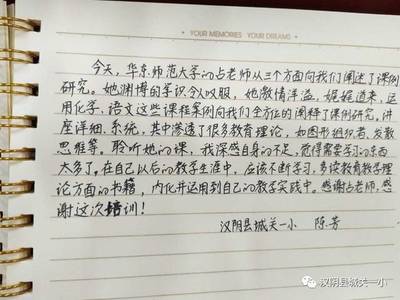 YOUR MEMORIES YOUR DREAMS
今天,华东师范大学的占老师从三个方面向我们阐述了课例
研究。她渊博的学识令人叹服,她激情洋溢,娓娓道来,运
用化学、语文这些课程案例向我们全方位的阐释了课例研究,讲
座详细、系统,其中渗透了很多教育理论,如图形组织者、发散
思维等。聆听她的课,我深感自身的不足,觉得需要学习的东西
太多了。在自己以后的教学生涯中,应该不断学习,多读教育教学理
论方面的书籍,内化并运用到自己的教学实践中。感谢占老师,感
谢这次培训!
汉阴县城关一小 陈芳
汉阴县城关一小